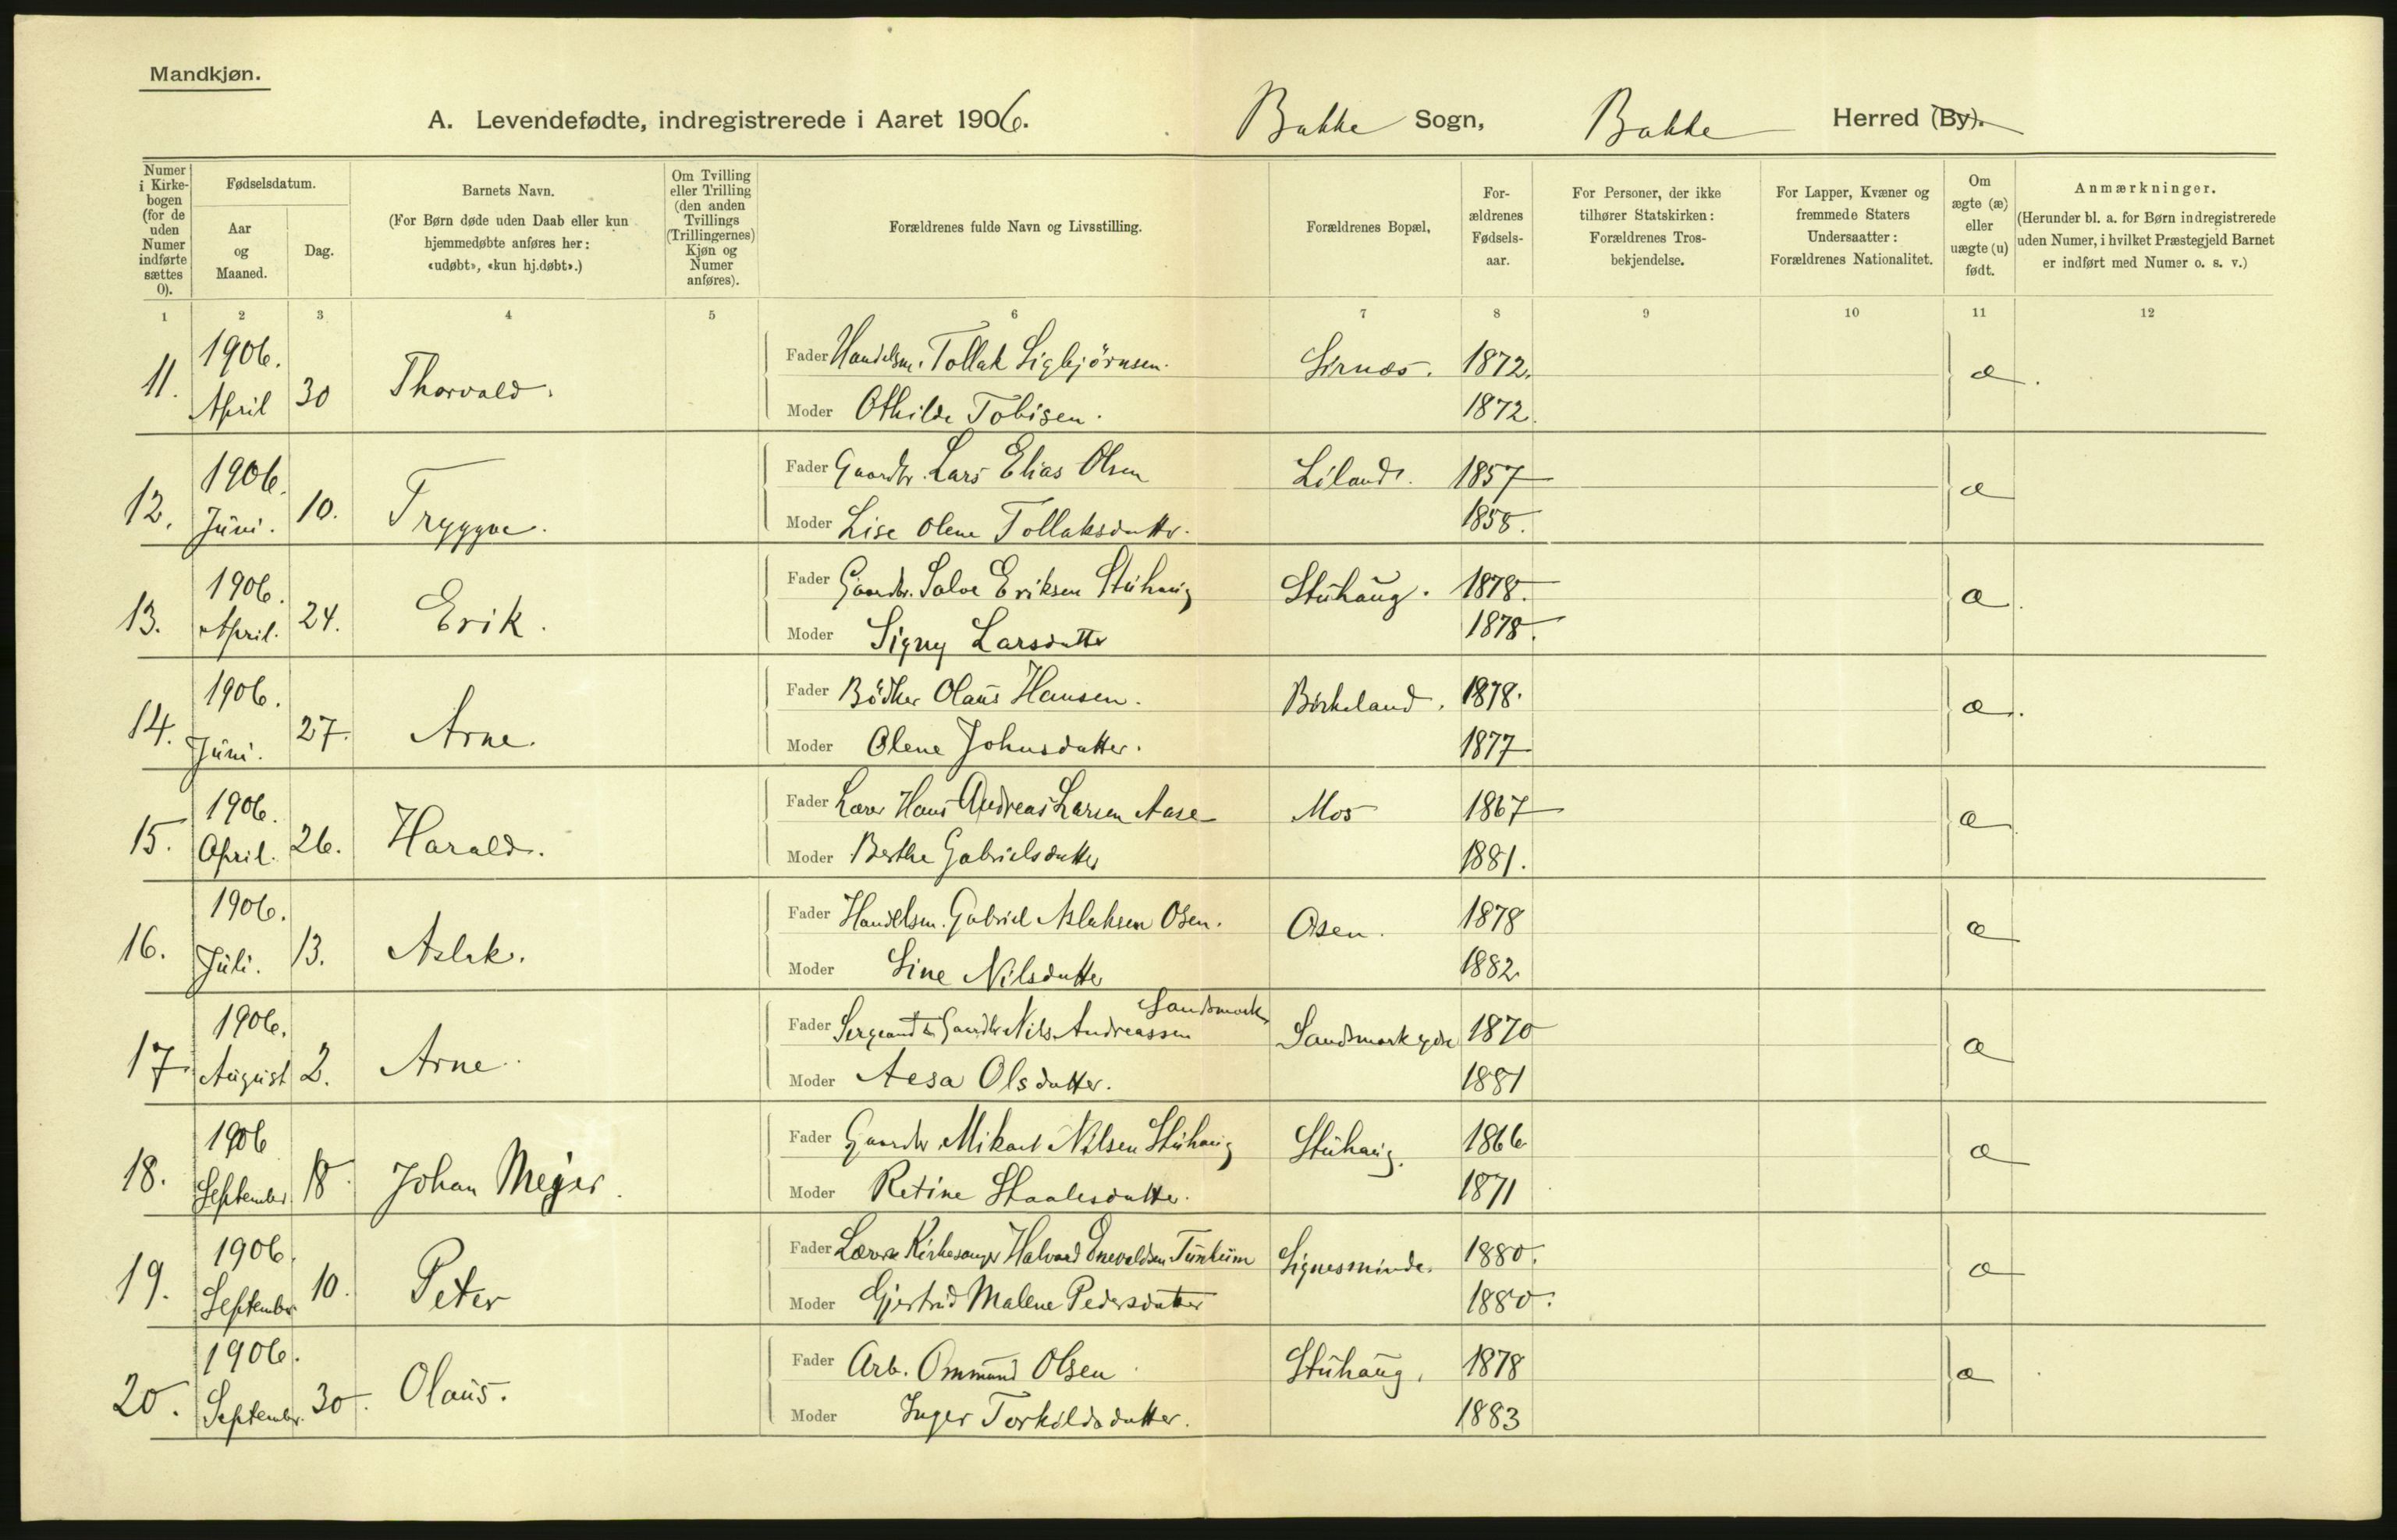 Mandkjøn.
A. Levendefødte, indregistrerede i Aaret 1906. Bakke Sogn, Bakke Herred (By).
Numer i Kirkebogen (for de uden Numer indførte sættes 0).
Fødselsdatum.
Aar og Maaned.
Dag.
Barnets Navn.
(For Børn døde uden Daab eller kun hjemmedøbte anføres her: «udøbt», «kun hj.døbt».)
Om Tvilling eller Trilling (den anden Tvillings (Trillingernes) Kjøn og Numer anføres).
Forældrenes fulde Navn og Livsstilling.
Forældrenes Bopæl,
Forældrenes Fødselsaar.
For Personer, der ikke tilhører Statskirken: Forældrenes Trosbekjendelse.
For Lapper, Kvæner og fremmede Staters Undersaatter: Forældrenes Nationalitet.
Om ægte (æ) eller uægte (u) født.
Anmærkninger.
(Herunder bl. a. for Børn indregistrerede uden Numer, i hvilket Præstegjeld Barnet er indført med Numer o. s. v.)
1 2 3 4 5 6 7 8 9 10 11 12
11. 1906. April 30 Thorvald. Fader Handelsm. Tollak Sigbjörnsen. Sirnæs. 1872. æ.
Moder Othilde Tobisen. 1872.
12. 1906. Juni. 10. Tryggve. Fader Gaardbr. Lars Elias Olsen Liland. 1857 æ
Moder Lise Olene Tollaksdatter. 1858.
13. 1906. April. 24. Erik. Fader Gaardbr. Salve Eriksen Stuhaug Stuhaug. 1878. æ.
Moder Signy Larsdatter 1878.
14. 1906. Juni. 27. Arne. Fader Bödker Olaus Hansen. Birkeland. 1878. æ.
Moder Olene Johnsdatter. 1877
15. 1906. April. 26. Harald. Fader Lærer Hans Andreas Larsen Aase Mos 1867 æ
Moder Berthe Gabrielsdatter 1881.
16. 1906. Juli. 13. Aslak. Fader Handelsm. Gabriel Aslaksen Osen. Osen. 1878 æ
Moder Sine Nilsdatter 1882
17 1906. August 2. Arne. Fader Sergeant & Gaardbr Nils Andreassen Sandsmark 1870 æ
Moder Aesa Olsdatter. 1881
18. 1906 September 18 Johan Mejer. Fader Gaardbr Mikael Nilsen Stuhaug Stuhaug. 1866 æ
Moder Retine Staalesdatter. 1871
19. 1906. September 10. Peter Fader Lærer Kirkesanger Halvard Enevoldsen Tunheim Signesminde. 1880. æ
Moder Gjertrud Malene Pedersdatter 1880.
20. 1906. September. 30. Olaus. Fader Arb. Ommund Olsen Stuhaug. 1878 æ
Moder Inger Torkildsdatter. 1883